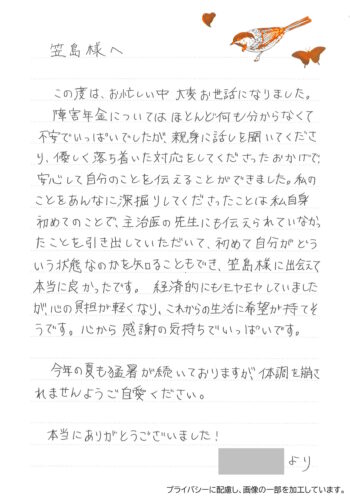 笠島様へ
この度は、お忙しい中 大変お世話になりました。
障害年金については ほとんど何も分からなくて
不安でいっぱいでしたが、親身に話しを聞いてくださ
り、優しく落ち着いた対応をしてくださったおかげで、
安心して自分のことを伝えることができました。私の
ことをあんなに深掘りしてくださったことは私自身
初めてのことで、主治医の先生にも伝えられていなかっ
たことを引き出していただいて、初めて自分がどう
いう状態なのかを知ることもでき、笠島様に出会えて
本当に良かったです。 経済的にもモヤモヤしていました
が、心の負担が軽くなり、これからの生活に希望が持てそ
うです。心から 感謝の気持ちでいっぱいです。
今年の夏も猛暑が続いておりますが、体調を崩さ
れませんようご自愛ください。
本当にありがとうございました!
より
プライバシーに配慮し、画像の一部を加工しています。